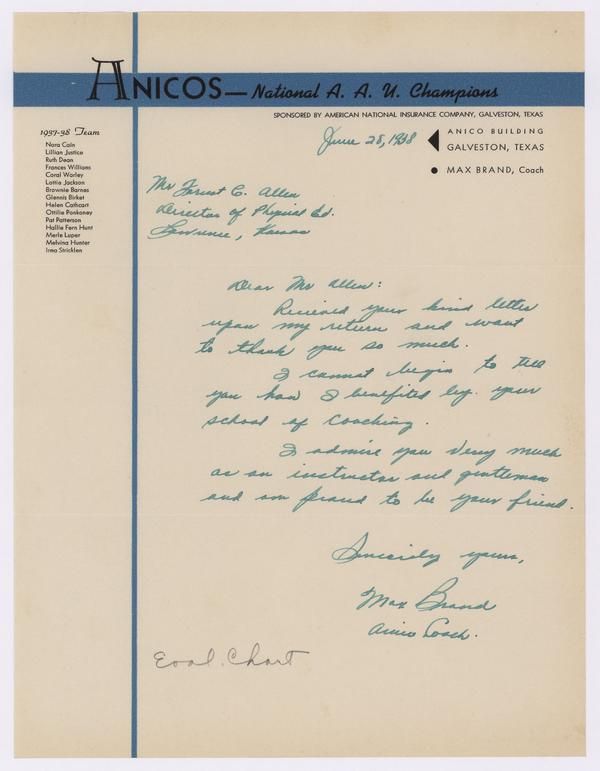 ANICOS—National A. A. U. Champions
SPONSORED BY AMERICAN NATIONAL INSURANCE COMPANY, GALVESTON, TEXAS
ANICO BUILDING
GALVESTON, TEXAS
MAX BRAND, Coach
1937-38 Team
Nora Cain
Lillian Justice
Ruth Dean
Frances Williams
Coral Worley
Lottie Jackson
Brownie Barnes
Glennis Birket
Helen Cathcart
Ottilie Ponkoney
Pat Patterson
Hallie Fern Hunt
Merle Luper
Melvina Hunter
Irma Stricklen
June 28, 1938
Mr Forrest C. Allen
Director of Physical Ed.
Lawrence, Kansas
Dear Mr Allen:
Recieved your kind letter
upon my return and want
to thank you so much.
I cannot begin to tell
you how I benefited by your
school of coaching.
I admire you very much
as an instructor and gentleman
and am proud to be your friend.
Sincerely yours,
Max Brand
Anico Coach.
Eval. Chart